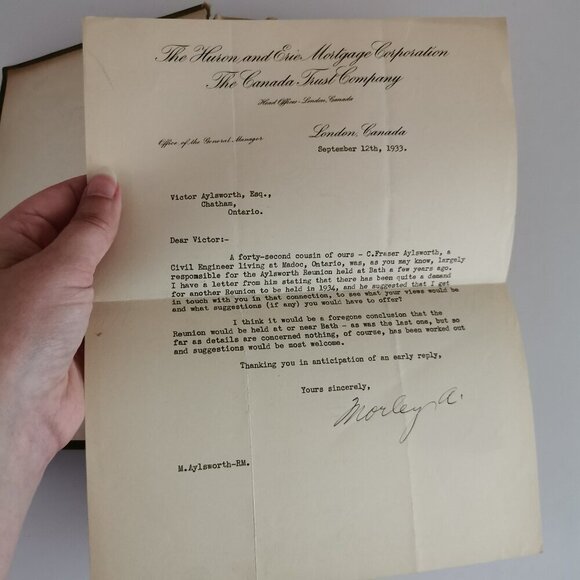 The Huron and Erie Mortgage Corporation
The Canada Trust Company
Head Offices - London, Canada
Office of the General Manager
London, Canada
September 12th, 1933.
Victor Aylsworth, Esq.,
Chatham,
Ontario.
Dear Victor:-
A forty-second cousin of ours - C.Fraser Aylsworth, a
Civil Engineer living at Madoc, Ontario, was, as you may know, largely
responsible for the Aylsworth Reunion held at Bath a few years ago.
I have a letter from him stating that there has been quite a demand
for another Reunion to be held in 1934, and he suggested that I get
in touch with you in that connection, to see what your views would be
and what suggestions (if any) you would have to offer?
I think it would be a foregone conclusion that the
Reunion would be held at or near Bath - as was the last one, but so
far as details are concerned nothing, of course, has been worked out
and suggestions would be most welcome.
Thanking you in anticipation of an early reply,
Yours sincerely,
Morley A.
M.Aylsworth-RM.